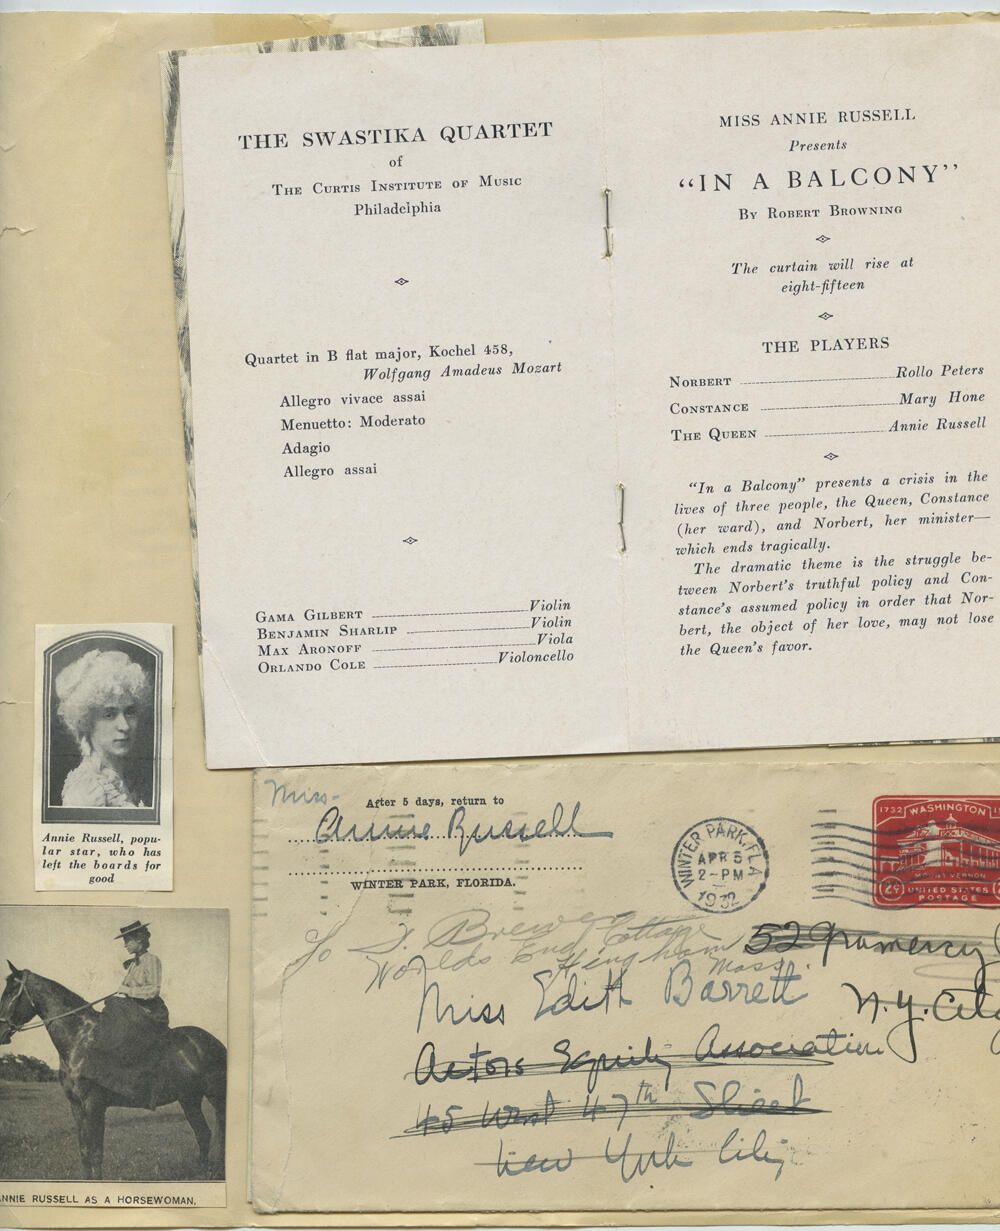 THE SWASTIKA QUARTET
of
THE CURTIS INSTITUTE OF MUSIC
Philadelphia
Quartet in B flat major, Kochel 458,
Wolfgang Amadeus Mozart
Allegro vivace assai
Menuetto: Moderato
Adagio
Allegro assai
GAMA GILBERT Violin
BENJAMIN SHARLIP Violin
MAX ARONOFF Viola
ORLANDO COLE Violoncello
MISS ANNIE RUSSELL
Presents
"IN A BALCONY"
BY ROBERT BROWNING
The curtain will rise at
eight-fifteen
THE PLAYERS
NORBERT Rollo Peters
CONSTANCE Mary Hone
THE QUEEN Annie Russell
"In a Balcony" presents a crisis in the
lives of three people, the Queen, Constance
(her ward), and Norbert, her minister—
which ends tragically.
The dramatic theme is the struggle be-
tween Norbert's truthful policy and Con-
stance's assumed policy in order that Nor-
bert, the object of her love, may not lose
the Queen's favor.
Annie Russell, popu-
lar star, who has
left the boards for
good
NNIE RUSSELL AS A HORSEWOMAN.
Miss-
After 5 days, return to
Annie Russell
WINTER PARK, FLORIDA.
WINTER PARK, FLA.
APR 5
2-PM
1932
1732 WASHINGTON
MOUNT VERNON
2¢ UNITED STATES
POSTAGE
To S. Brewer Cottage
Worlds End Hingham
Mass.
52 Gramercy
N.Y. City
Miss Edith Barrett
Actors Equity Association
45 West 47th Street
New York City